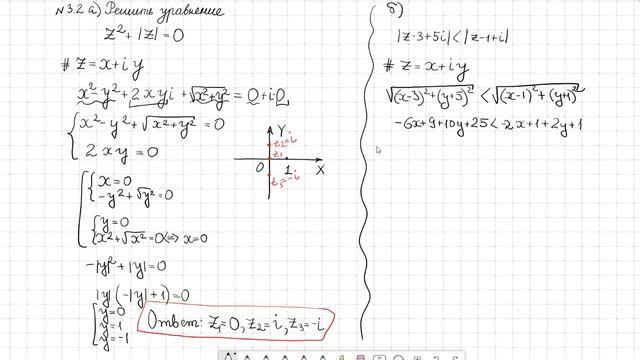 №3.2 а) Решить уравнение
z² + |z| = 0
# z = x + iy
x² - y² + 2xyi + √(x² + y²) = 0 + i·0
x² - y² + √(x² + y²) = 0
2xy = 0
x = 0
-y² + √y² = 0
y = 0
x² + √x² = 0 <=> x = 0
-|y|² + |y| = 0
|y|(-|y| + 1) = 0
y = 0
y = 1
y = -1
Ответ: z₁ = 0, z₂ = i, z₃ = -i
Y
z₂ = i
z₁
0 1 X
z₃ = -i
б)
|z - 3 + 5i| < |z - 1 + i|
# z = x + iy
√((x-3)² + (y+5)²) < √((x-1)² + (y+1)²)
-6x + 9 + 10y + 25 < -2x + 1 + 2y + 1